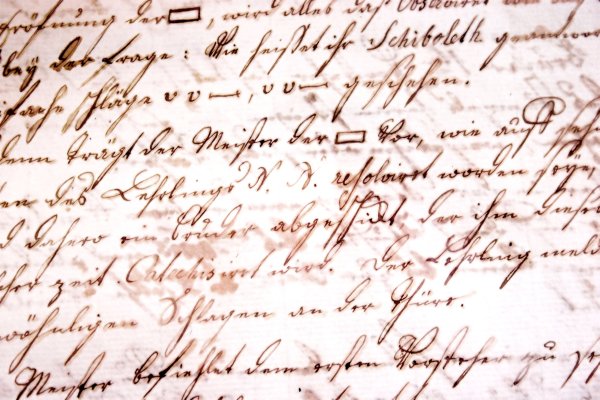 eröffnung der ▭, wird alles das Observiret
bey der Frage: Wie heisset ihr Schiboleth geantwor
fache schläge v v —, v v — geschehen.
denn trägt der Meister der ▭ Vor, wie auch
en des Lehrlings N. N. resolviret worden seye,
d dahero ein bruder abgeschickt, der ihm diese
cher zeit Catechisiret wird. Der Lehrling meld
wöhnligen Schlagen an der Thüre.
Meister befiehlet dem ersten Vorsteher zu